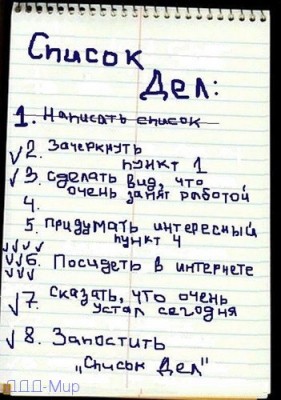 Список
Дел:
1. Написать список
✓2. Зачеркнуть
пункт 1
✓3. Сделать вид, что
очень занят работой
4.
5. Придумать интересный
пункт 4
✓✓✓✓
✓✓6. Посидеть в интернете
✓✓✓
✓7. Сказать, что очень
устал сегодня
✓8. Запостить
„Список Дел"
ДДД-Мир